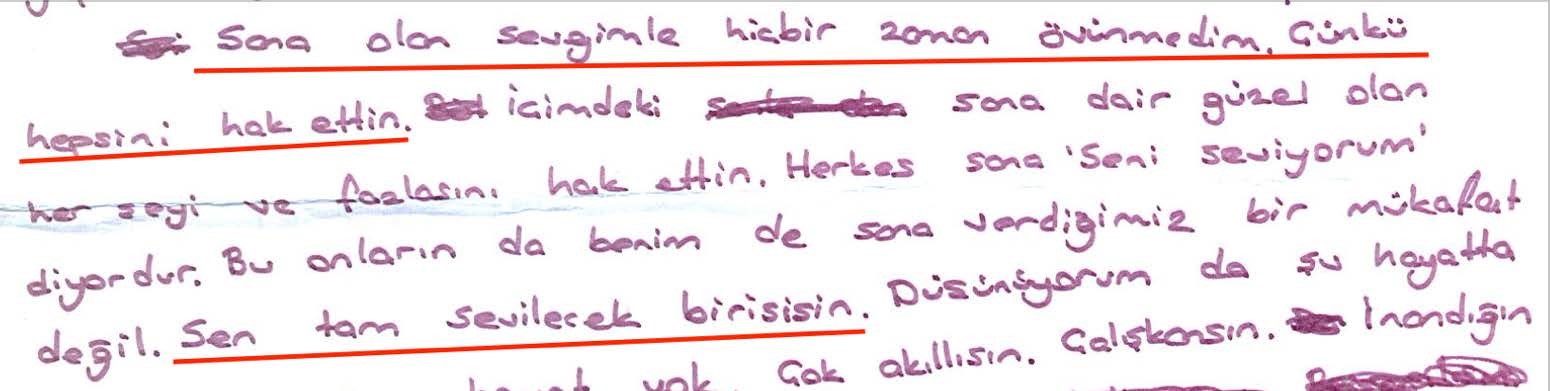 Sana olan sevgimle hiçbir zaman övünmedim. Çünkü
hepsini hak ettin. içimdeki sana dair güzel olan
her şeyi ve fazlasını hak ettin. Herkes sana 'Seni seviyorum'
diyordur. Bu onların da benim de sana verdiğimiz bir mükafat
değil. Sen tam sevilecek birisisin. Düşünüyorum da şu hayatta
yok. Çok akıllısın. Çalışkansın. İnandığın